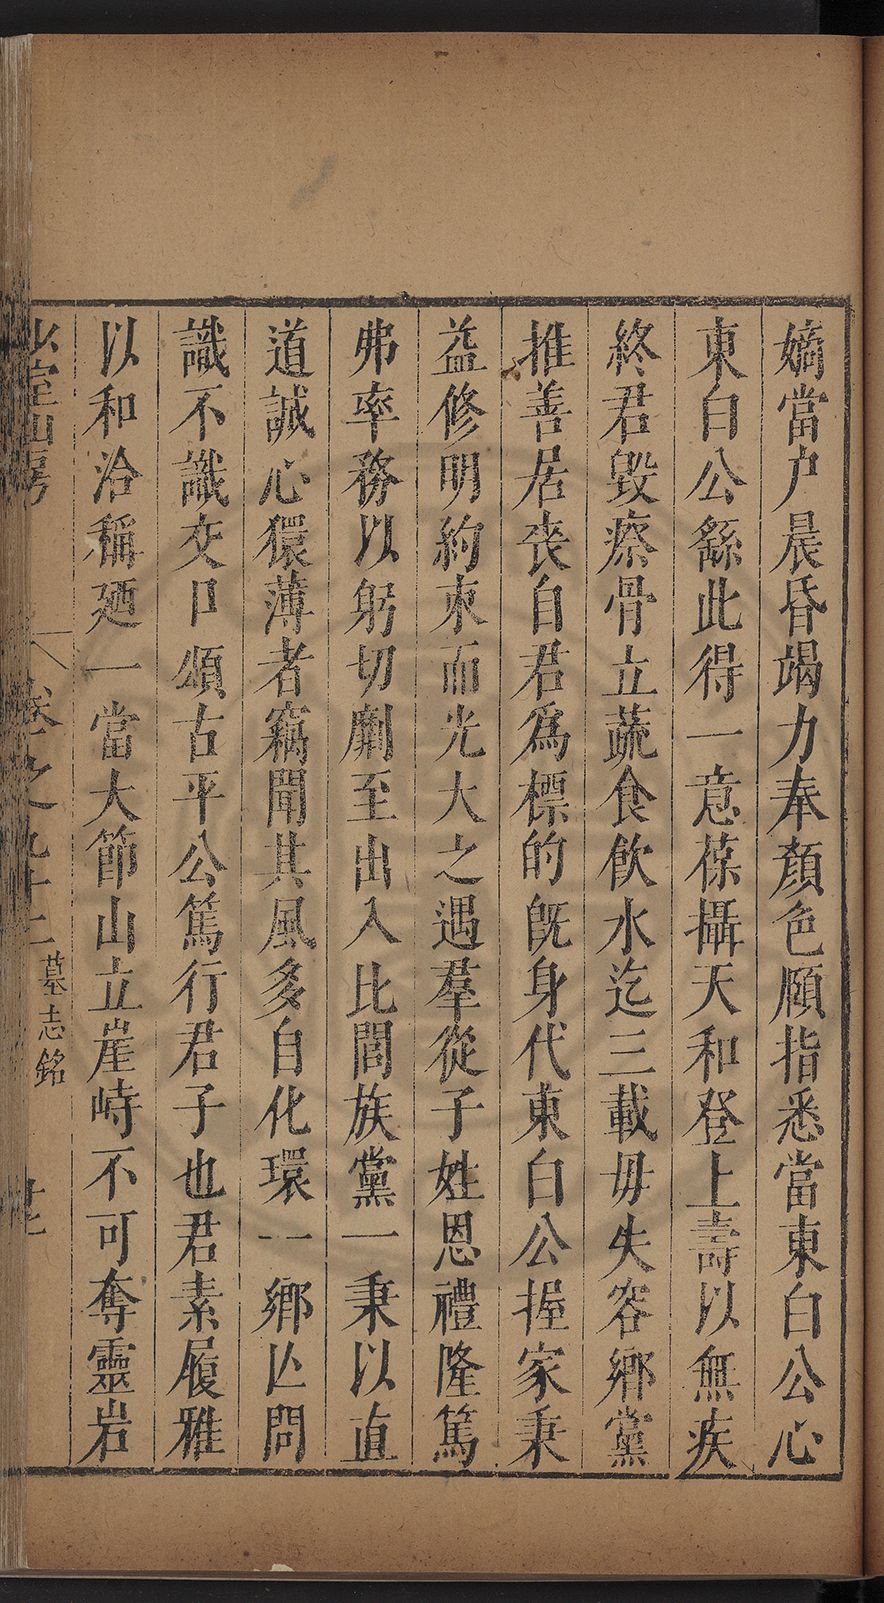 嫡當户晨昏竭力奉顏色頤指悉當東白公心
東白公繇此得一意葆攝天和登上壽以無疾
終君毁瘵骨立蔬食飲水迄三載毋失容鄉黨
推善居喪自君爲標的旣身代東白公握家秉
益修明約束而光大之遇羣從子姓恩禮隆篤
弗率務以躬切劘至出入比閭族黨一秉以直
道誠心獧薄者竊聞其風多自化環一鄉亾問
識不識交口頌古平公篤行君子也君素履雅
以和洽稱廼一當大節山立崖峙不可奪靈岩
少室山房
卷之九十二
墓志銘